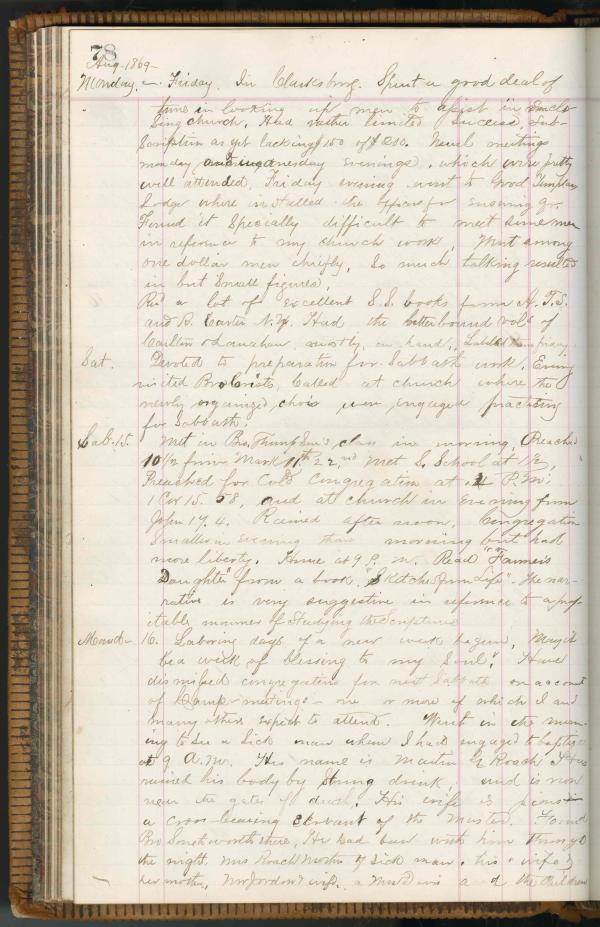 78
Aug. 1869 -
Monday, - Friday. In Clarksburg. Spent a good deal of
time in looking up men to assist in
church. Had rather limited success, Sub-
scription as yet lacking $150 of $
monday evenings, which were pretty
well attended. Friday evening went to Good Templars
Lodge where installed the officers for ensuing qr.
Found it specially difficult to meet some men
in reference to my church work. Most among
one dollar men chiefly, so much talking resulted
in but small figures.
Recd a lot of excellent S.S. books from A.T.S.
and R. Carter N.Y. Had the vols of
Carlton & Lanahan mostly on hand.
Sat. Devoted to preparation for Sabbath work. Evening
visited Bro. called at church where the
newly organized choir were engaged practicing
for Sabbath.
Sab. 15. Met in Bro. Thompson's class in morning. Preached
10 1/2 from Mark 11th 22nd Met S. School at 1 1/2.
Preached for Cold Congregation at 4 P.M.
1 Cor 15. 58, and at church in evening from
John 17. 4. Rained after noon. Congregation
smaller in evening than morning but had
more liberty. Home at 9 P.M. Read "Farmer's
Daughter" from a book "Sketches from Life". The nar-
rative is very suggestive in reference to a prof-
itable manner of studying the Scriptures
Mond - 16. Laboring days of a new week begun. May it
be a week of blessing to my soul. Have
dismissed congregations for next Sabbath on account
of Camp-meetings - one or more of which I and
many others expect to attend. Went in the morn-
ing to see a sick man whom I had engaged to baptize
at 9 A.M. His name is Martin Roach I
ruined his body by strong drink, and is now
near the gates of death. His wife is pious
a cross-bearing servant of the Master. Found
Bro there, He had been with him through
the night. Mrs Roach Mother of sick man, his wife &
her mother, Mr Jordon & wife, a Mrs and the children